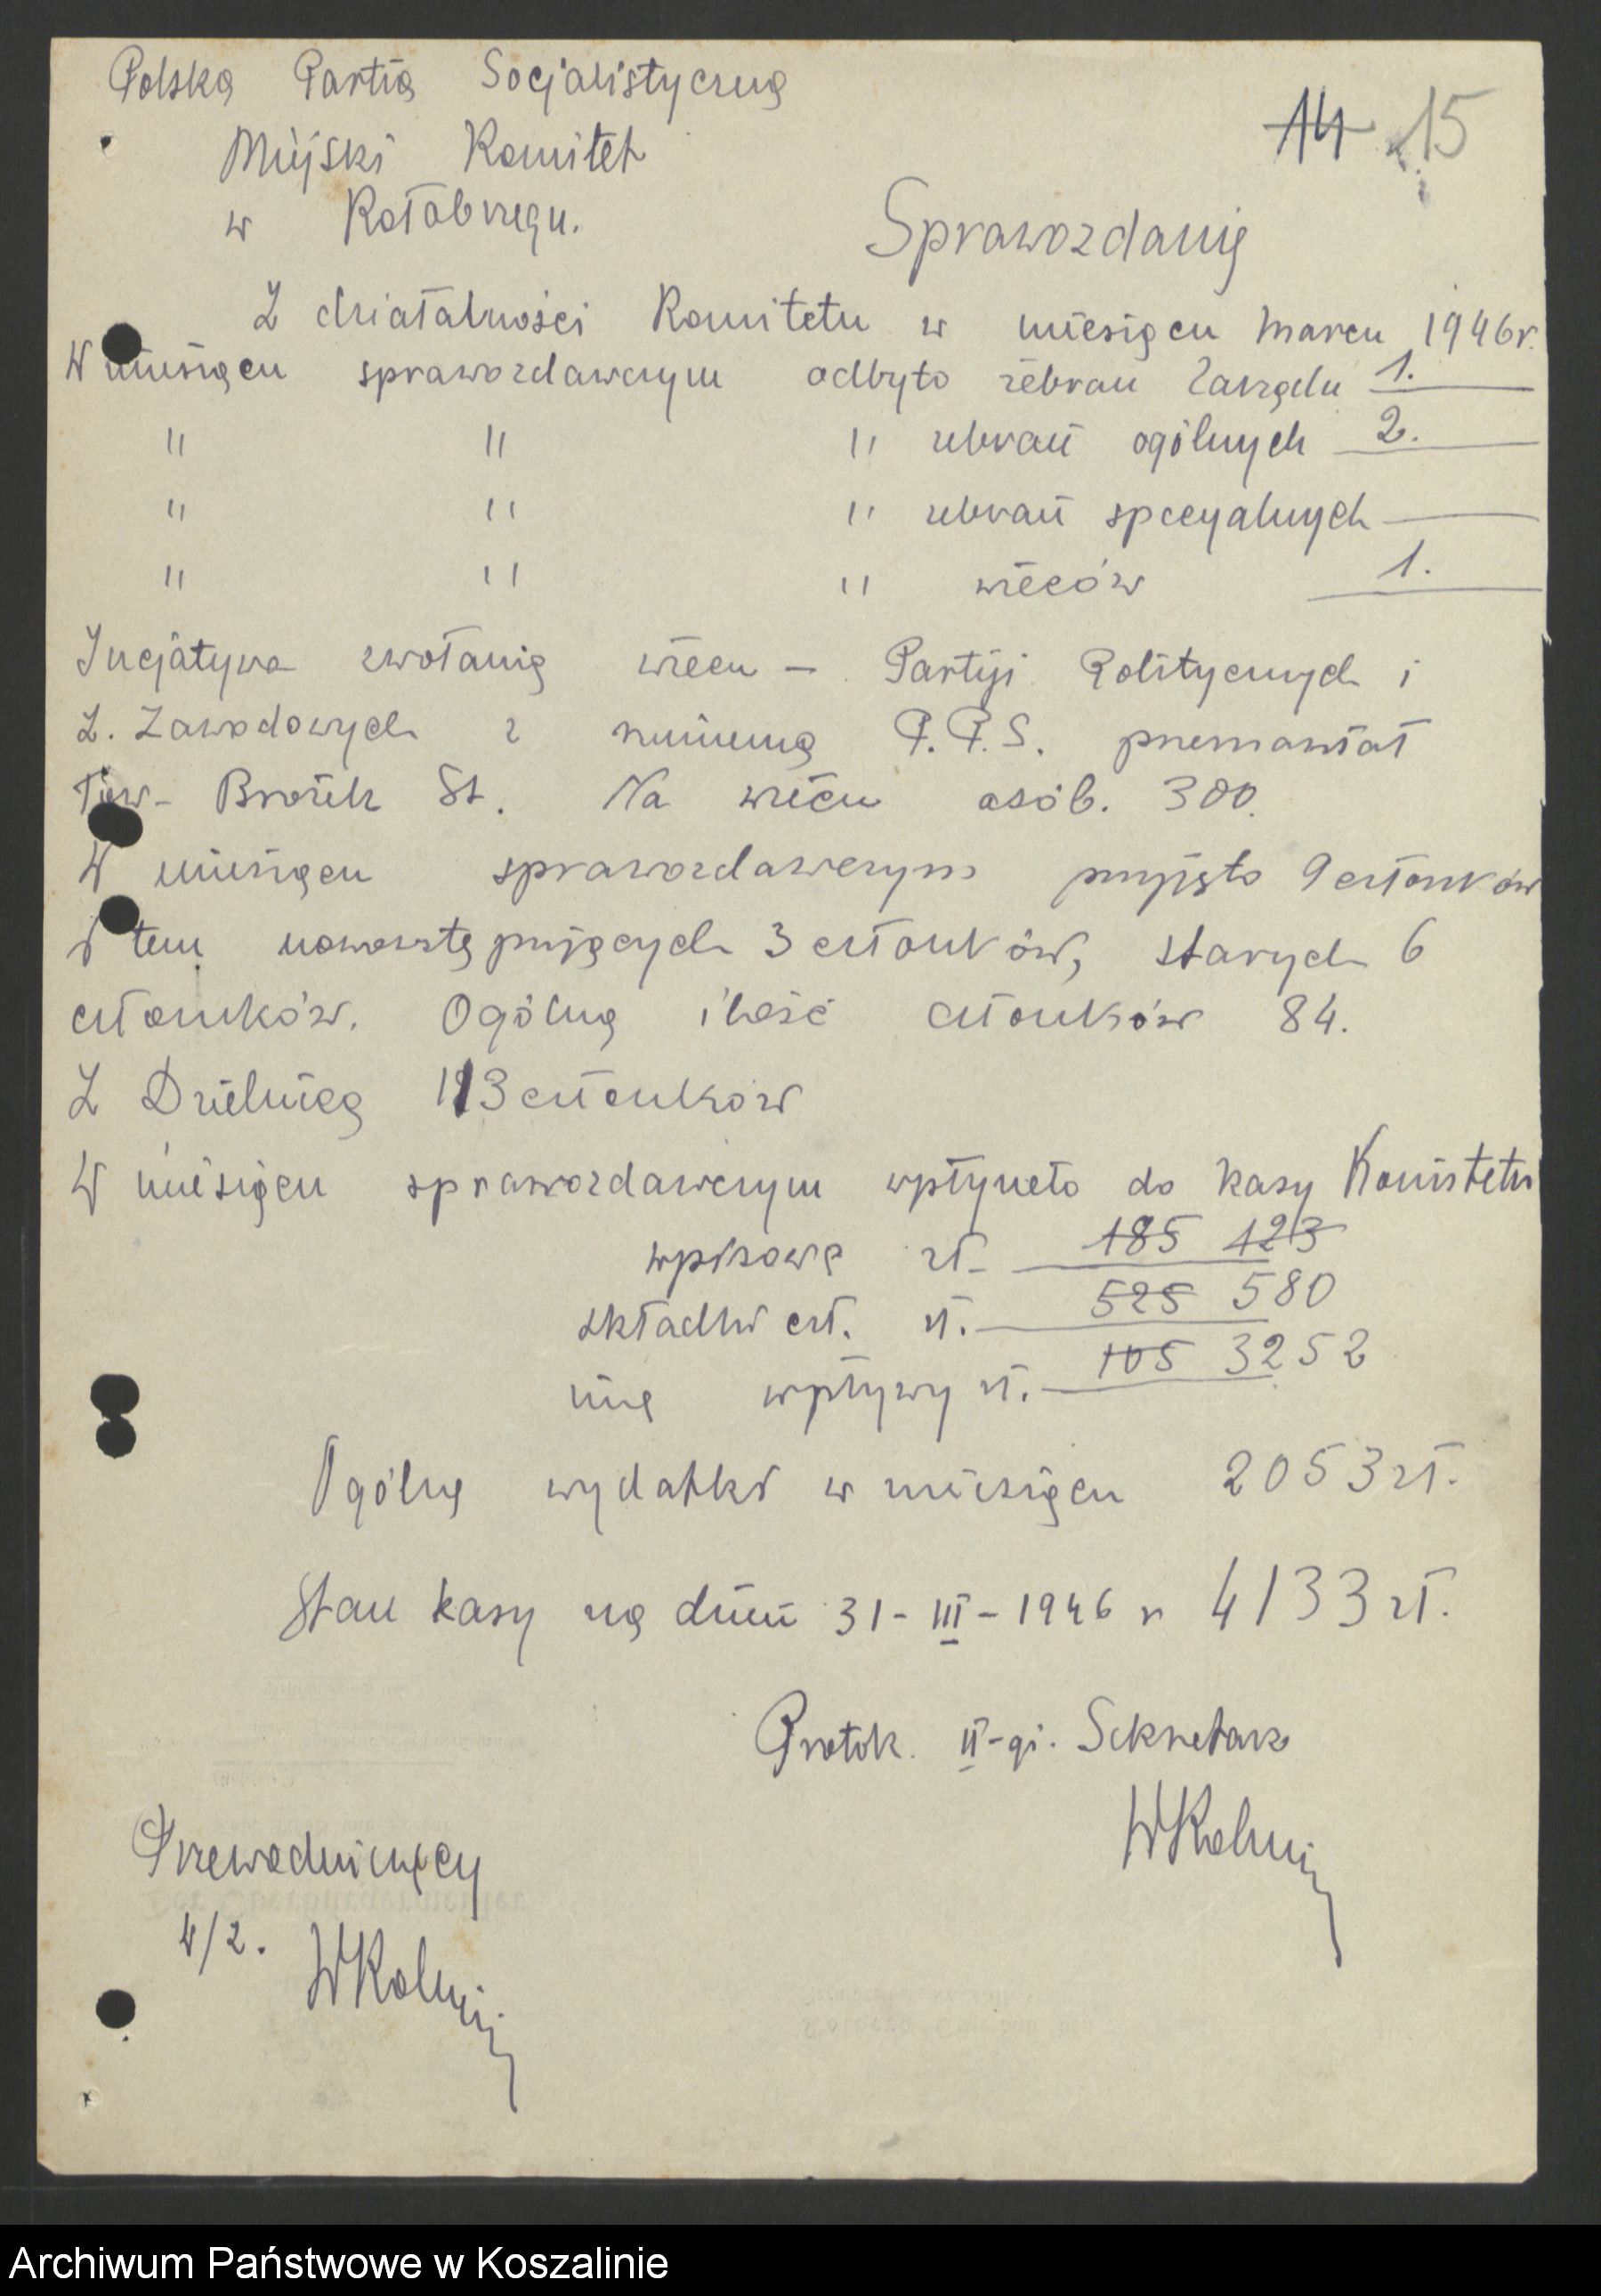 Polska Partia Socjalistyczna
14 15
Miejski Komitet
w Kołobrzegu.
Sprawozdanie
Z działalności Komitetu w miesiącu marcu 1946 r.
W miesiącu sprawozdawczym odbyto zebrań Zarządu 1.
" " " zebrań ogólnych 2.
" " " zebrań specyalnych
" " " wieców 1.
Inicjatywa zwołania wiecu – Partyi Politycznych i
Z. Zawodowych z P.P.S. przemawiał
Tow. St. Na wiecu osób. 300.
W miesiącu sprawozdawczym przyjęto 9 członków
W tem nowowstępujących 3 członków, starych 6
członków. Ogólna ilość członków 84.
Z Dzielnicą 113 członków
W miesiącu sprawozdawczym wpłyneło do kasy Komitetu
wpisowe zł. 185 123
składki czł. zł. 525 580
inne wpływy zł. 105 3252
Ogólne wydatki w miesiącu 2053 zł.
Stan kasy na dzień 31-III-1946 r 4133 zł.
Protok. II-gi. Sekretarz
Przewodniczący
w/z.
Archiwum Państwowe w Koszalinie